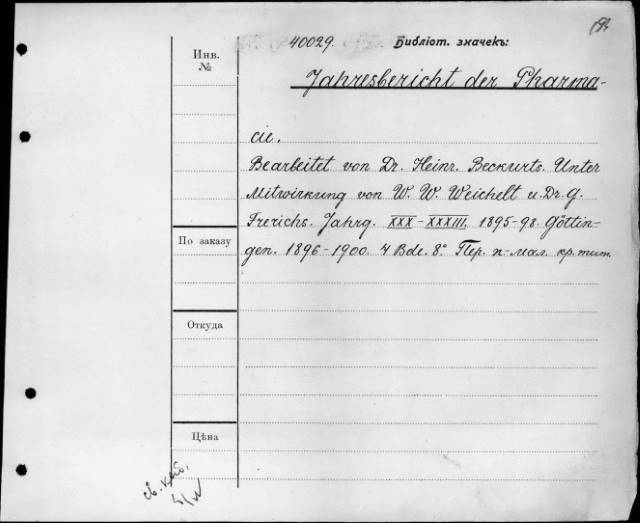 40029. Библіот. значекъ:
Инв. №
Jahresbericht der Pharma-
cie.
Bearbeitet von Dr. Heinr. Beckurts. Unter
Mitwirkung von W. W. Weichelt u. Dr. G.
Frerichs. Jahrg. XXX-XXXIII. 1895-98. Götting-
gen. 1896-1900. 4 Bde. 8°. Пер. п.-мал. кр. тит.
По заказу
Откуда
Цѣна
св. каб.